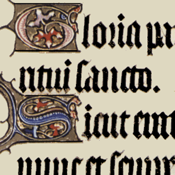 Gloria pa
ritui sancto.
Sicut erat
nunc et semper